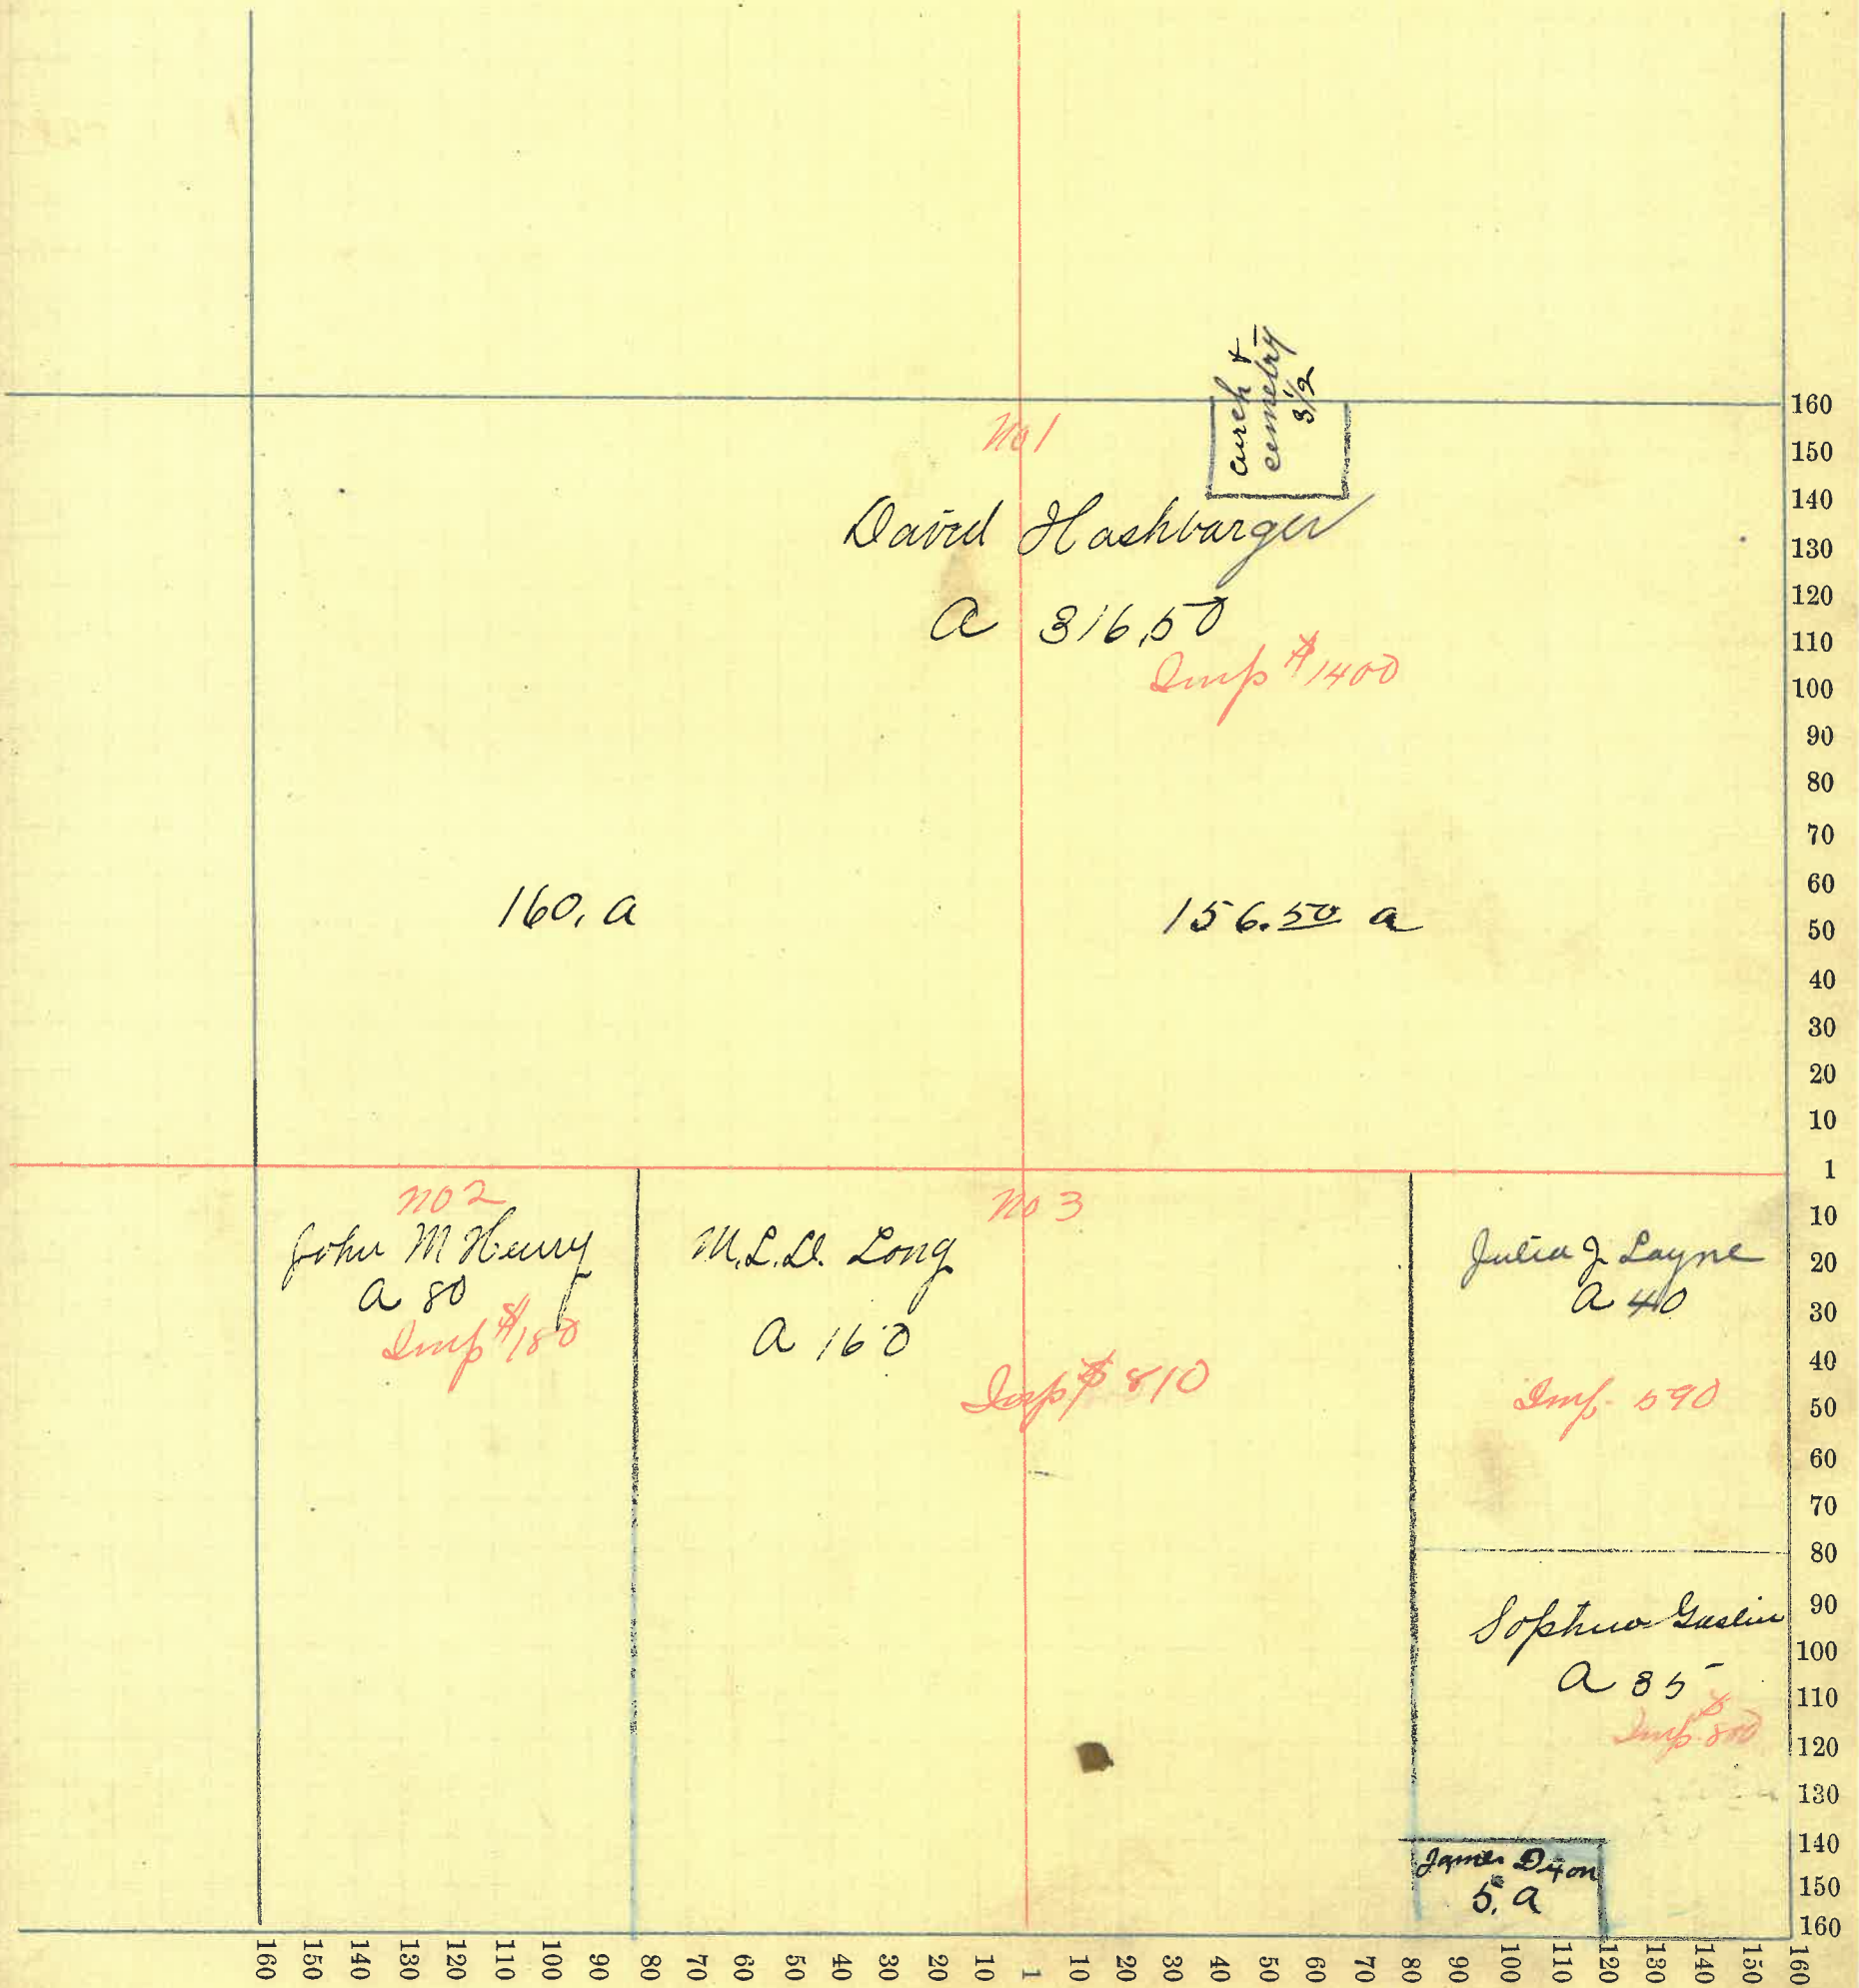 curch &
cemetry
3 1/2
No 1
David Hashbarger
a 316.50
Imp $1400
160. a
156.50 a
no 2
John M Henry
a 80
Imp $180
M.L.D. Long
a 160
No 3
Imp $810
Julia J Layne
a 40
Imp. 590
a 35
Imp $ 800
James Dixon
5. a
160
150
140
130
120
110
100
90
80
70
60
50
40
30
20
10
1
10
20
30
40
50
60
70
80
90
100
110
120
130
140
150
160
160 150 140 130 120 110 100 90 80 70 60 50 40 30 20 10 1 10 20 30 40 50 60 70 80 90 100 110 120 130 140 150 160